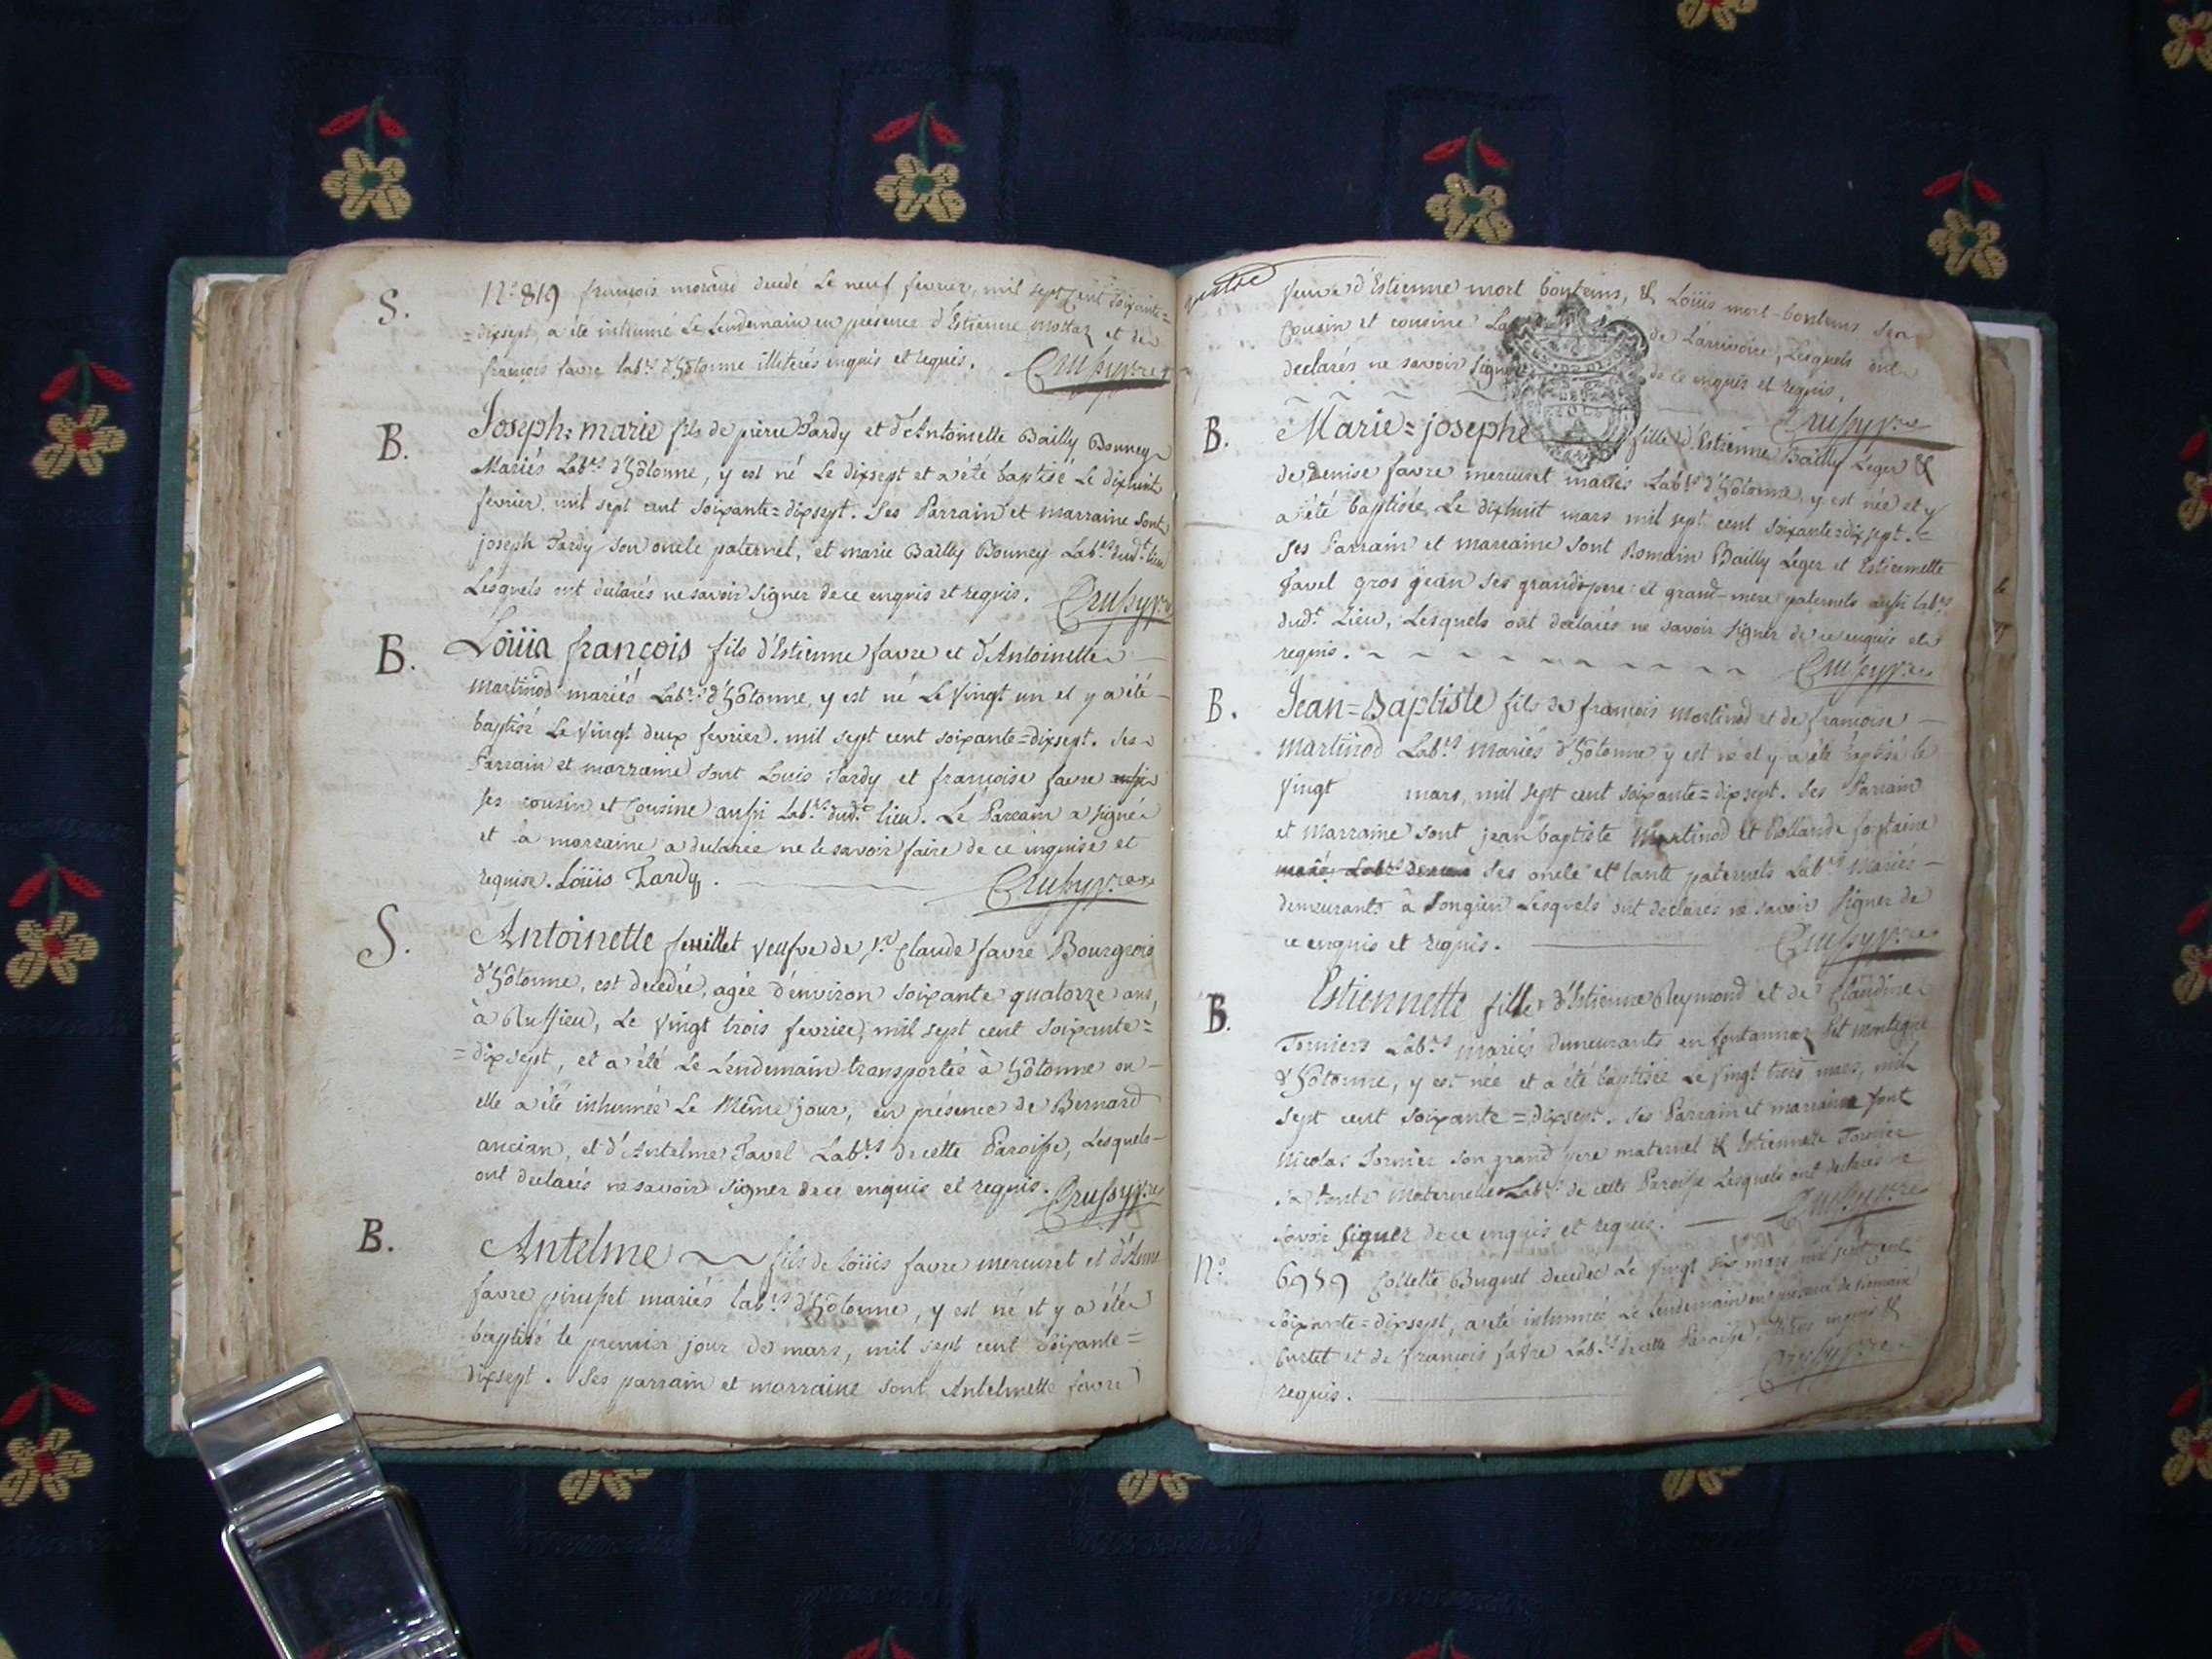 S. N.o 819 françois morand decedé Le neuf fevrier, mil sept Cent soixante=
=dixsept, a été inhumé Le Lendemain en presence d'Estienne mottaz et de
françois favre lab.rs d'hôtonne illiterés enquis et requis.
B. Joseph=marie fils de pierre Tardy et d'Antoinette Bailly Bonney
Mariés Lab.rs d'hôtonne, y est né Le dixsept et a été baptisé Le dixhuit
fevrier, mil sept cent soixante=dixsept. Ses Parrain et marraine sont
joseph Tardy son oncle paternel, et marie Bailly Bonney Lab.rs dud.t lieu
Lesquels ont declarés ne savoir signer de ce enquis et requis.
B. Loüis françois fils d'Estienne favre et d'Antoinette
martinod mariés Lab.rs d'hôtonne, y est né Le vingt un et y a été
baptisé Le vingt deux fevrier, mil sept cent soixante=dixsept. Ses
Parrain et marraine sont Louis Tardy et françoise favre aussi
ses cousin et Cousine aussi Lab.rs dud.t lieu. Le Parrain a signé
et la marraine a declarée ne le savoir faire de ce enquise et
requise. Loüis Tardy.
S. Antoinette feuillet veufve de s.r Claude favre Bourgeois
d'hôtonne, est decedée, agée d'environ soixante quatorze ans,
à Ruffieu, Le vingt trois fevrier, mil sept cent soixante=
=dixsept, et a été Le Lendemain transportée à hôtonne ou
elle a été inhumée Le Même jour, en présence de Bernard
ancian, et d'Antelme Favel Lab.rs de cette Paroisse, Lesquels
ont declarés ne savoir signer de ce enquis et requis.
B. Antelme fils de Loüis favre mercuret et d'
favre mariés lab.rs d'hôtonne, y est né et y a été
baptisé le premier jour de mars, mil sept cent soixante=
dixsept. Ses parrain et marraine sont Antelmette favre
veuve d'Estienne mort bontems, & Loüis mort-bontems ses
Cousin et cousine de Larnivoire, Lesquels ont
declarés ne savoir signer de ce enquis et requis.
B. Marie=josephe fille d'Estienne Bailly Leger &
de Denise favre mercuret mariés Lab.rs d'hôtonne, y est née et y
a été baptisée Le dixhuit mars mil sept cent soixante=dixsept.
Ses Parrain et marraine sont Romain Bailly Leger et Estiennette
Favel gros jean ses grand-pere et grand-mere paternels aussi lab.rs
dud.t Lieu, Lesquels ont declarés ne savoir signer de ce enquis et
requis.
B. Jean=Baptiste fils de françois martinod et de françoise
martinod Lab.rs mariés d'hôtonne y est né et y a été baptisé le
vingt mars, mil sept cent soixante=dixsept. Ses Parrain
et Marraine sont jean baptiste Martinod et Rollande fontaine
ses oncle et tante paternels Lab.rs Mariés
demeurants à Songieu Lesquels ont declarés ne savoir signer de
ce enquis et requis.
B. Estiennette fille d'Estienne Reymond et de Claudine
Torniers Lab.rs mariés demeurants en montagne
d'hôtonne, y est née et a été baptisée Le vingt trois mars, mil
sept cent soixante=dixsept. Ses Parrain et marraine sont
Nicolas Tornier son grand pere maternel & Estiennette Tornier
sa tante Maternelle Lab.rs de cette Paroisse Lesquels ont declarés ne
savoir signer de ce enquis et requis.
N.o 6959 Collette Buguet decedée Le vingt six mars mil sept cent
soixante=dixsept, a été inhumée Le Lendemain en presence de romain
burtet et de françois favre Lab.rs de cette Paroisse, enquis &
requis.